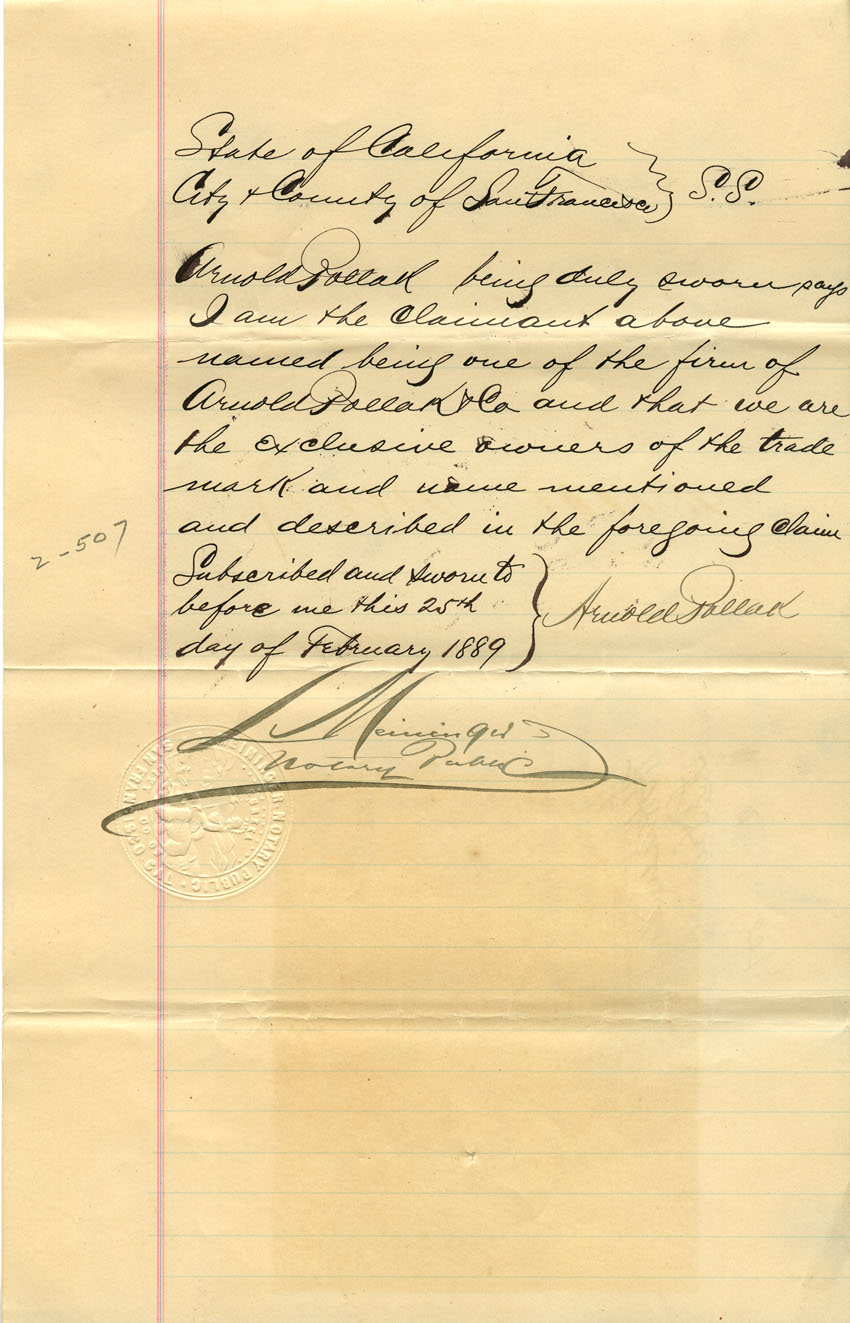 State of California
City & County of San Francisco } S.S.
Arnold Pollak being duly sworn says
I am the claimant above
named being one of the firm of
Arnold Pollak & Co and that we are
the exclusive owners of the trade
mark and name mentioned
and described in the foregoing claim
Subscribed and sworn to
before me this 25th
day of February 1889
} Arnold Pollak
2-507
L Meininger
Notary Public
MEININGER · NOTARY PUBLIC · SAN FRANCISCO CAL